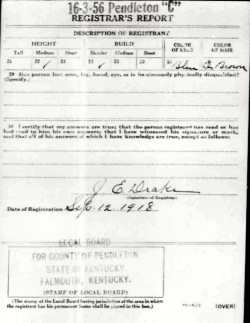 16-3-56 Pendleton "C"
REGISTRAR'S REPORT
DESCRIPTION OF REGISTRANT
HEIGHT BUILD COLOR OF EYES COLOR OF HAIR
Tall Medium Short Slender Medium Stout
21 22 ✓ 23 24 ✓ 25 26 27 Blue 28 Brown
29 Has person lost arm, leg, hand, eye, or is he obviously physically disqualified?
(Specify).
30 I certify that my answers are true; that the person registered has read or has
had read to him his own answers; that I have witnessed his signature or mark,
and that all of his answers of which I have knowledge are true, except as follows:
J. E. Drake
(Signature of Registrar)
Date of Registration Sep. 12 1918
LOCAL BOARD
FOR COUNTY OF PENDLETON
STATE OF KENTUCKY
FALMOUTH, KENTUCKY.
(STAMP OF LOCAL BOARD)
(The stamp of the Local Board having jurisdiction of the area in which
the registrant has his permanent home shall be placed in this box.)
(OVER)